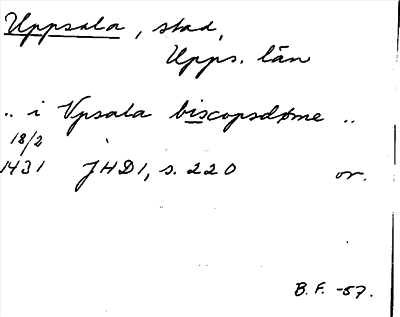 Uppsala, stad,
Upps. län
.. i Vpsala biscopsdøme ..
18/2
1431 JHD1, s. 220 or.
B.F. -57.